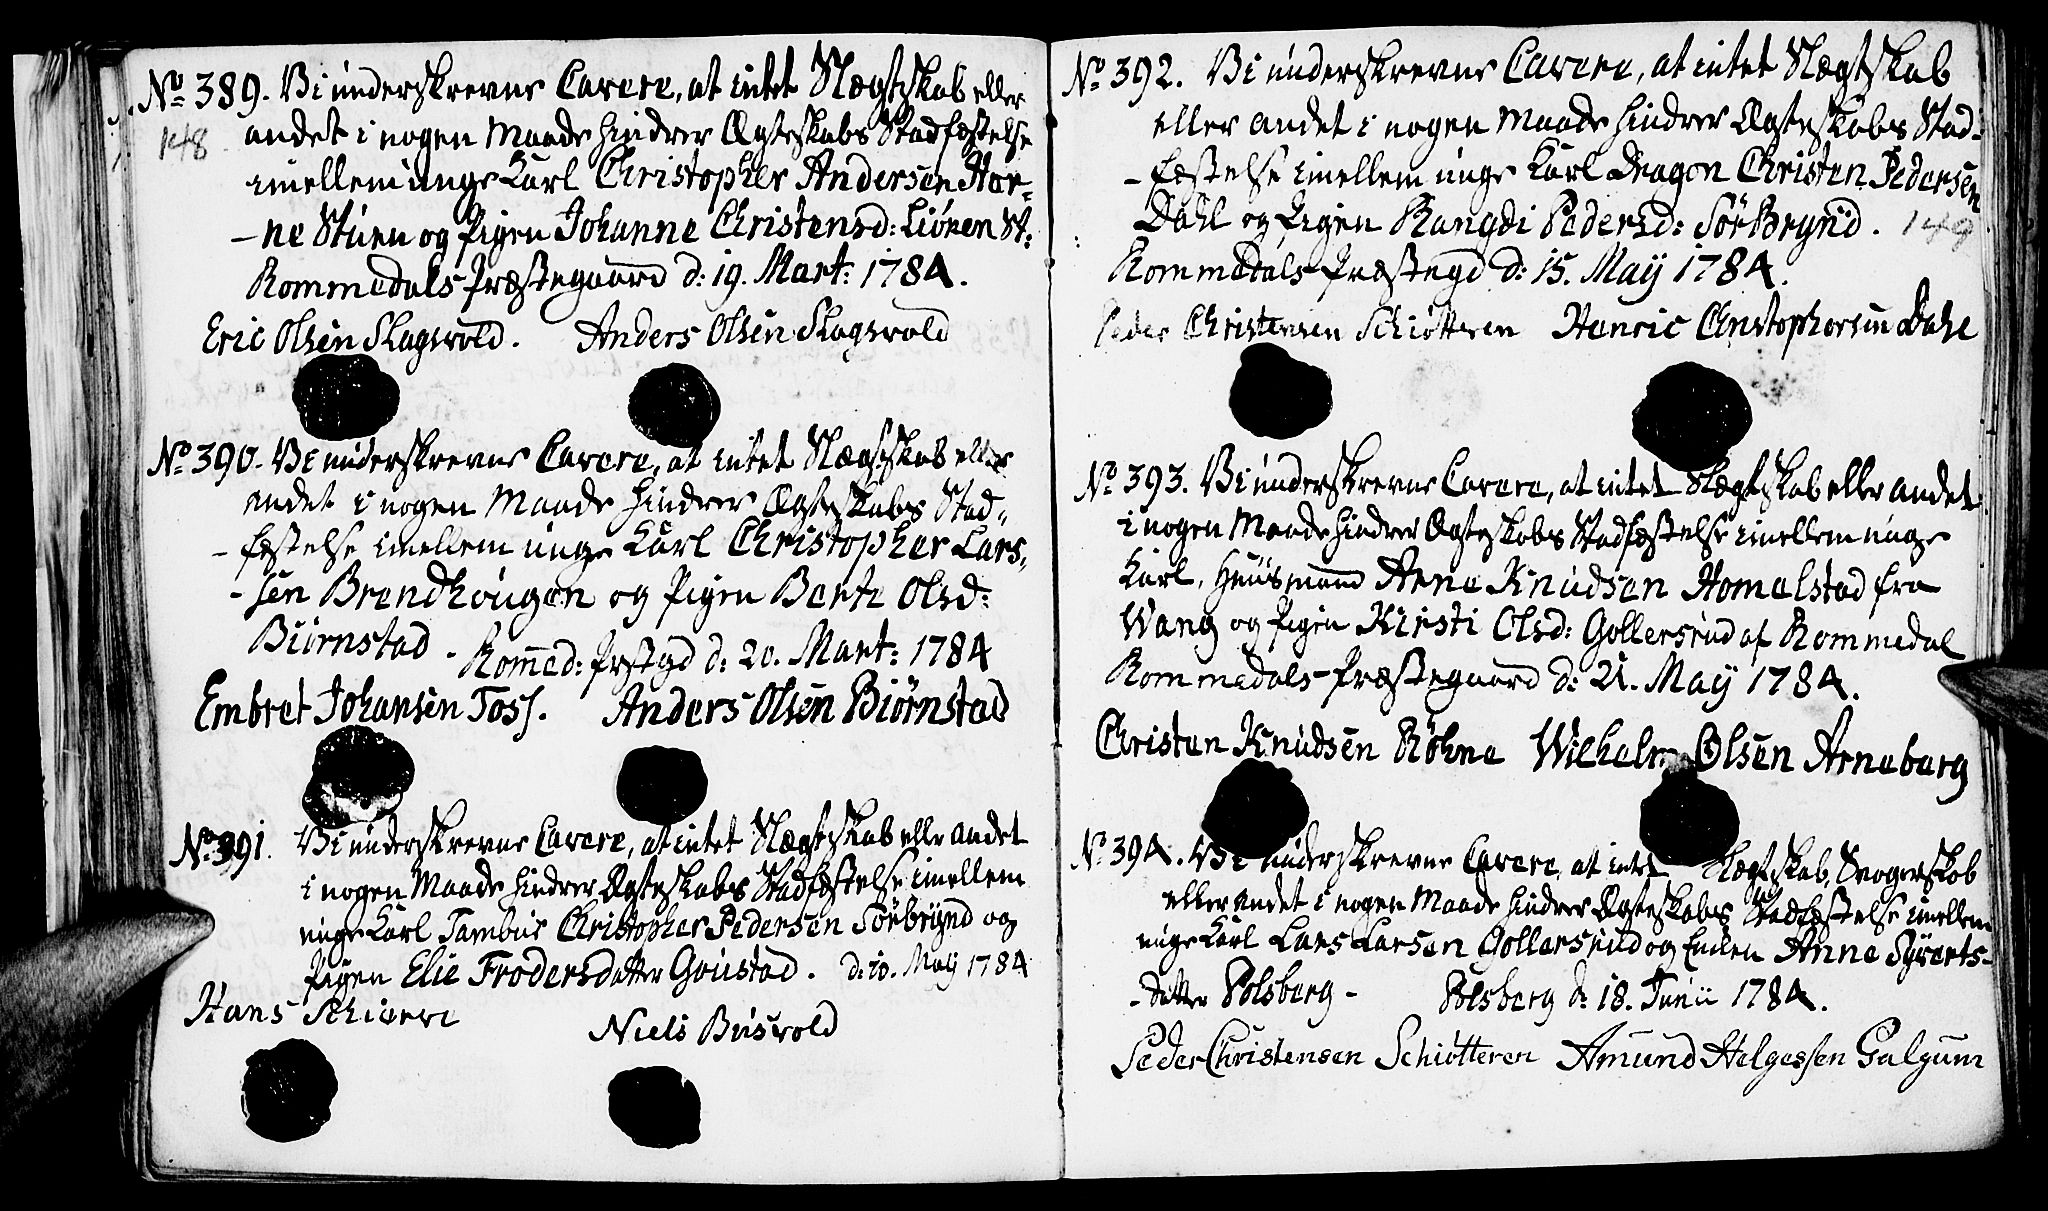 No 389. Vi underskrevne Cavere, at intet Slægtskab eller
148
andet i nogen Maade hindrer Ægteskabs Stadfæstelse
imellem unge Karl Christopher Andersen Hor-
-ne Stuen og Pigen Johanne Christensd: Liönen St:
Rommedals Præstegaard d: 19. Mart: 1784.
Eric Olsen Slagsvold. Anders Olsen Slagsvold
No 390. Vi underskrevne Cavere, at intet Slægtskab eller
andet i nogen Maade hindrer Ægteskabs Stad„
-fæstelse imellem unge Karl Christopher Lars„
-sen Brendhougen og Pigen Berte Olsd:
Biørnstad - Romed: Prstgd d: 20. Mart: 1784
Embret Johansen Toss. Anders Olsen Biørnstad
No 391. Vi underskrevne Cavere, at intet Slægtskab eller andet
i nogen Maade hindrer Ægteskabs Stadfæstelse imellem
unge Karl Tambur Christopher Pedersen Sörbrÿnd og
Pigen Elie Frodersdatter Goustad. d: 10. Maÿ 1784
Hans Schiveri
Niels Busvold
No 392. Vi underskrevne Cavere, at intet Slægtskab
eller andet i nogen Maade hindrer Ægteskabs Stad-
-fæstelse imellem unge Karl Dragon Christen Pedersen
Dahl og Pigen Rangdi Pedersd: SörBrÿnd. 149
Rommedals Præstegd d: 15. Maÿ 1784.
Peder Christensen Schiötteren Henric Christophersen Dahl
No 393. Vi underskrevne Cavere, at intet Slægtskab eller andet
i nogen Maade hindrer Ægteskabs Stadfæstelse imellem unge
Karl, Huusmand Arne Knudsen Homelstad fra
Wang og Pigen Kirsti Olsd: Gollersrud af Rommedal
Rommedals Præstegaard d: 21. Maÿ 1784.
Christen Knudsen Röhne Wilhelm Olsen Arneberg
No 394. Vi underskrevne Cavere, at intet Slægtskab, Svogerskab
eller andet i nogen Maade hindrer Ægteskabs Stadfæstelse imellem
unge Karl Lars Larsen Gollersrud og Enken Anne Sÿverts-
-datter Polsberg - Polsberg d: 18. Junii 1784.
Peder Christensen Schiötteren Amund Helgessen Galgum